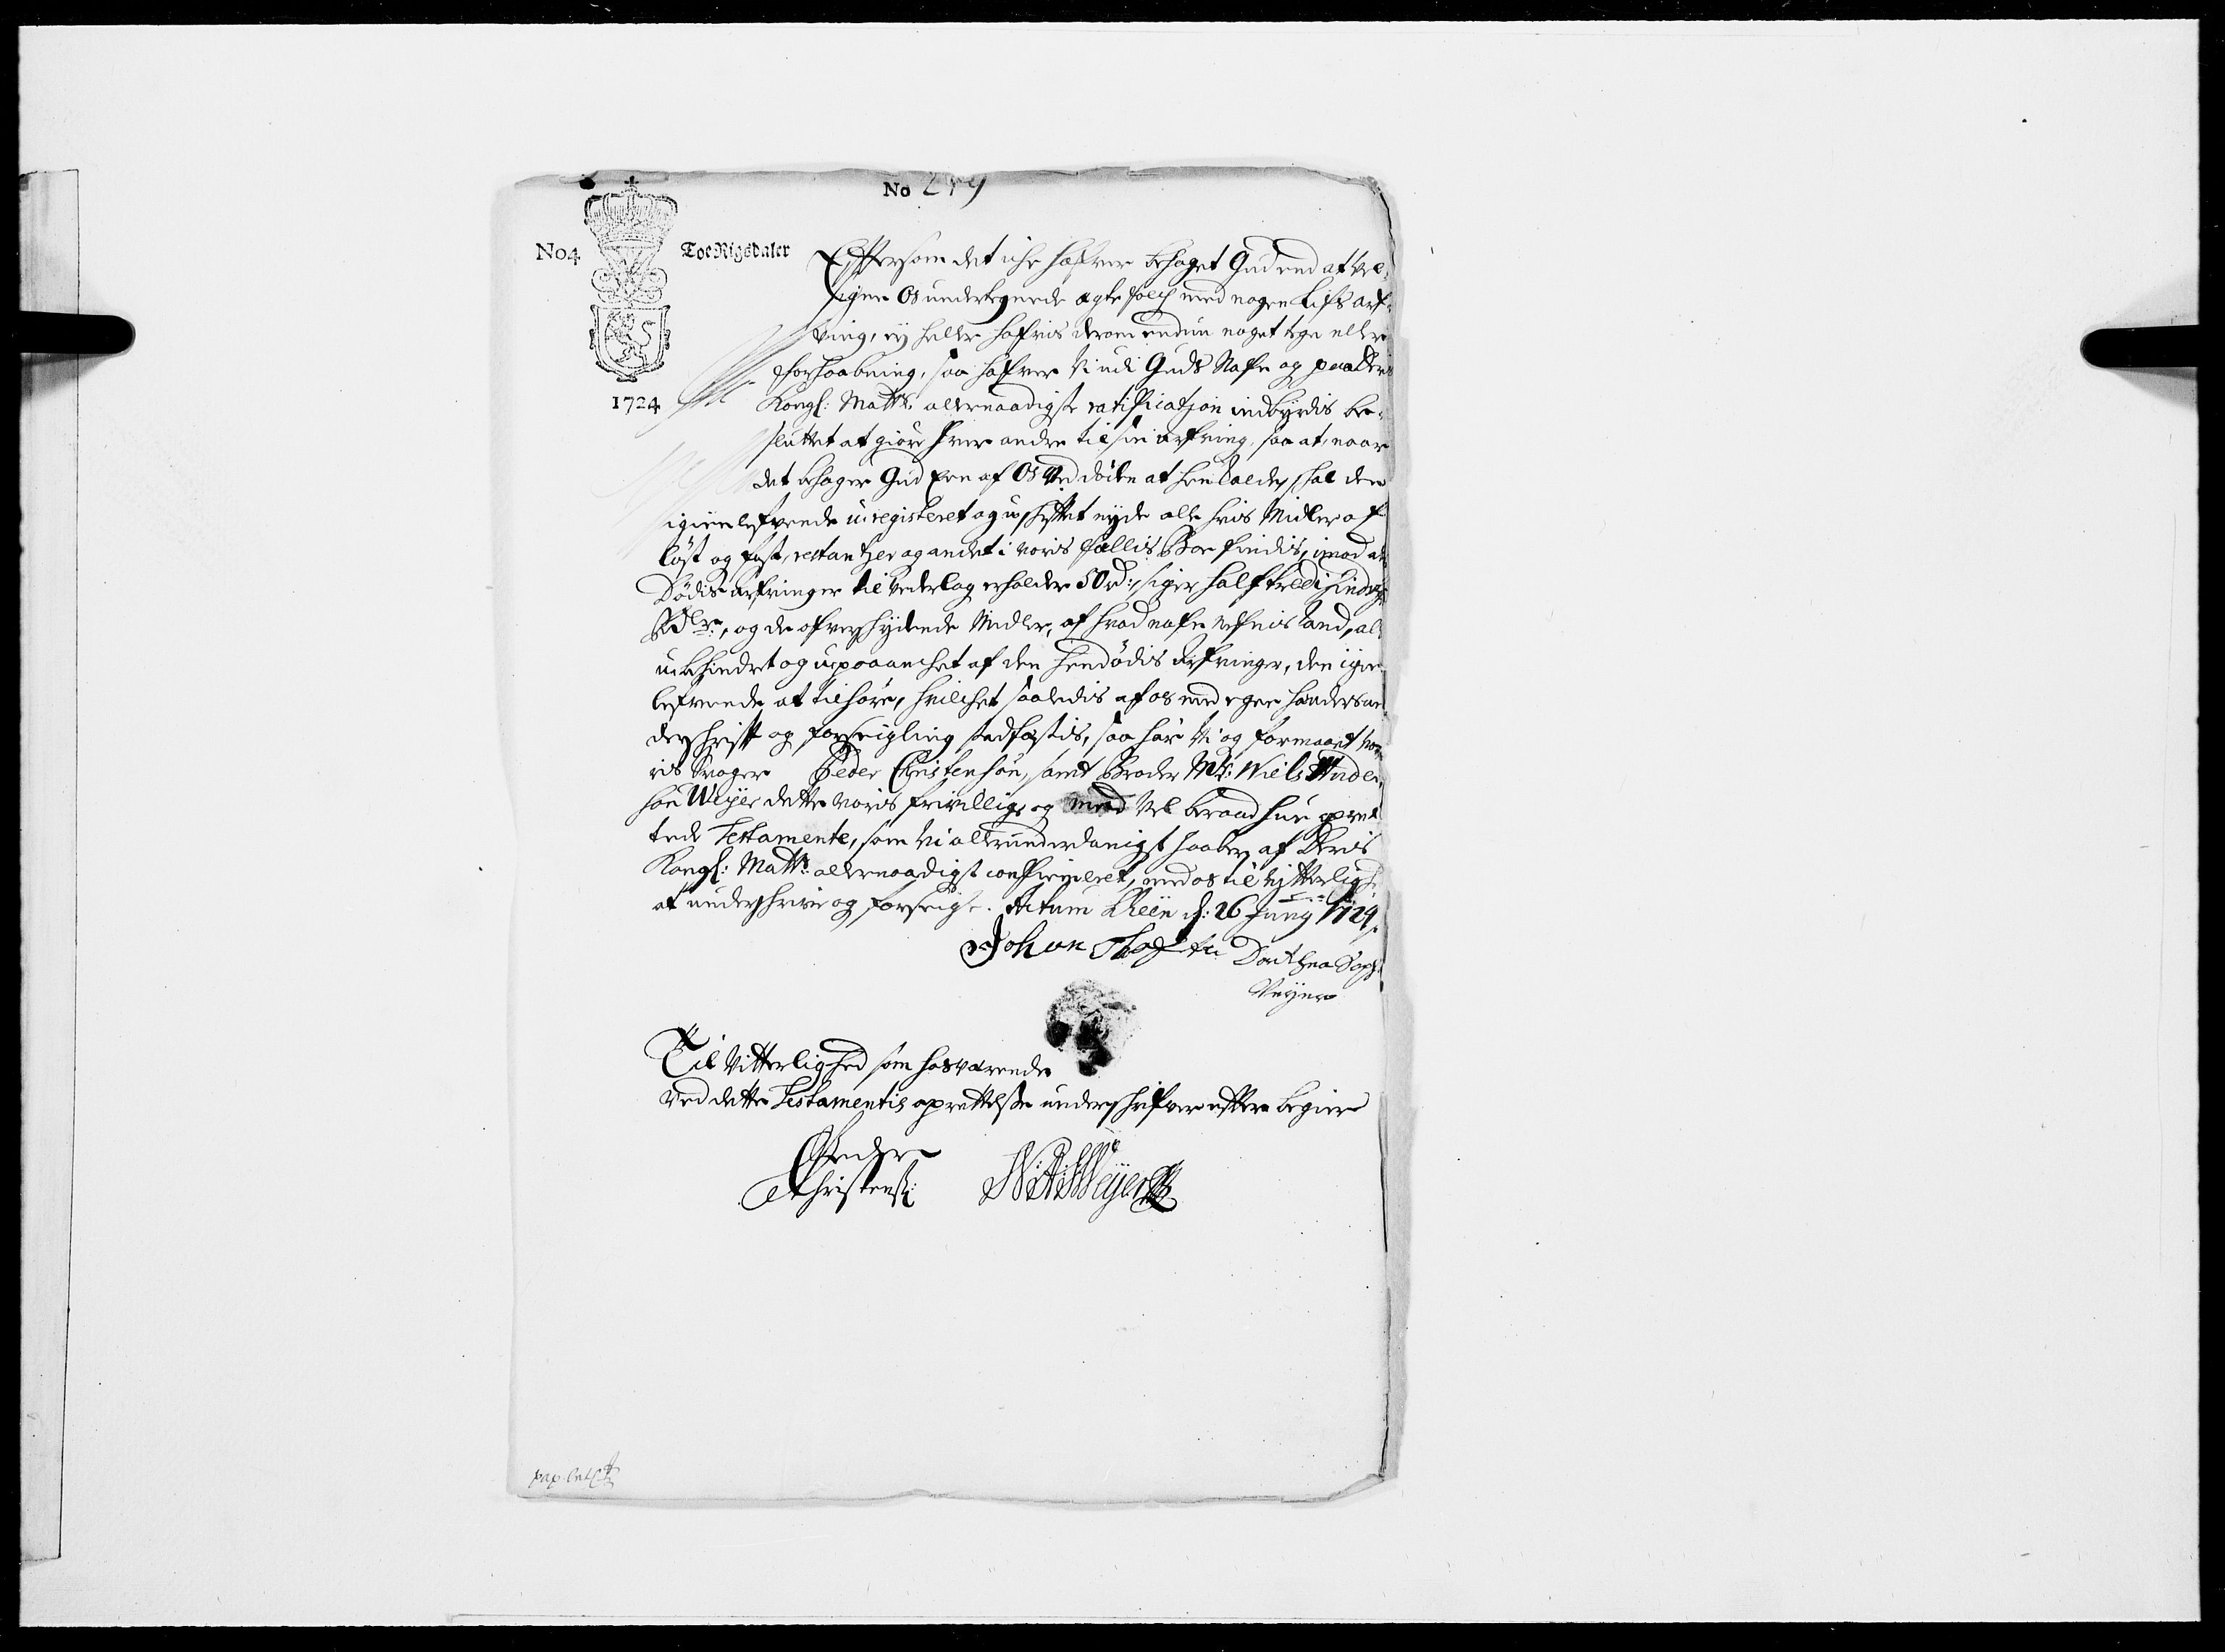 No 279
No4
Toe Rigsdaler
1724
Eftersom det iche hafver behaget Gud end at vel-
signe Os underteignede ægte folch med nogen Lifs arf-
ving, ej heller hafvis derom endnu noget tegn eller
forhaabning, saa hafver Vi udi Guds Nafn og paa Deris
Kongl: Maÿtts allernaadigste ratification indbyrdis be-
sluttet at giøre hver andre til sin arfving, saa at, naar
det behager Gud Een af Os ved døden at henkalde, skal den
igienlefvende uregisteret og uskiftet nyde alle hvis Midler af
løst og fast, restantzer og andet i voris fællis Boe findis, imod at den
Dødis arfvinger til vederlag erholder 50 rd:, siger halftredisindstiufve
Rdlr, og de ofverskydende Midler, af hvad nafn nefnis kand, al
uhindret og upaaanchet af den hendødis Arfvinger, den igien
lefvende at tilhøre, hvilchet saaledis af os med egen hænders un
derskrift og forseigling stadfæstis, saa har Vi og formaaet vo
ris Svoger Peder Christensøn, samt Broder Mr: Niels Anders
søn Weÿer dette voris frivillige og med vel beraad hue opret
tede Testamente, som Vi allerunderdanigst haaber af Deris
Kongl: Maÿtt: allernaadigst confirmeret, med os til vitterlighed
at underskrive og forseigle. Actum d: 26 Junÿ 1724
Johan Dorthea Soph
Weÿer
Til Vitterlighed som hosværende
ved dette Testamentis oprettelse underskrifver efter begier
Peder
Christens: N: A: Weÿer